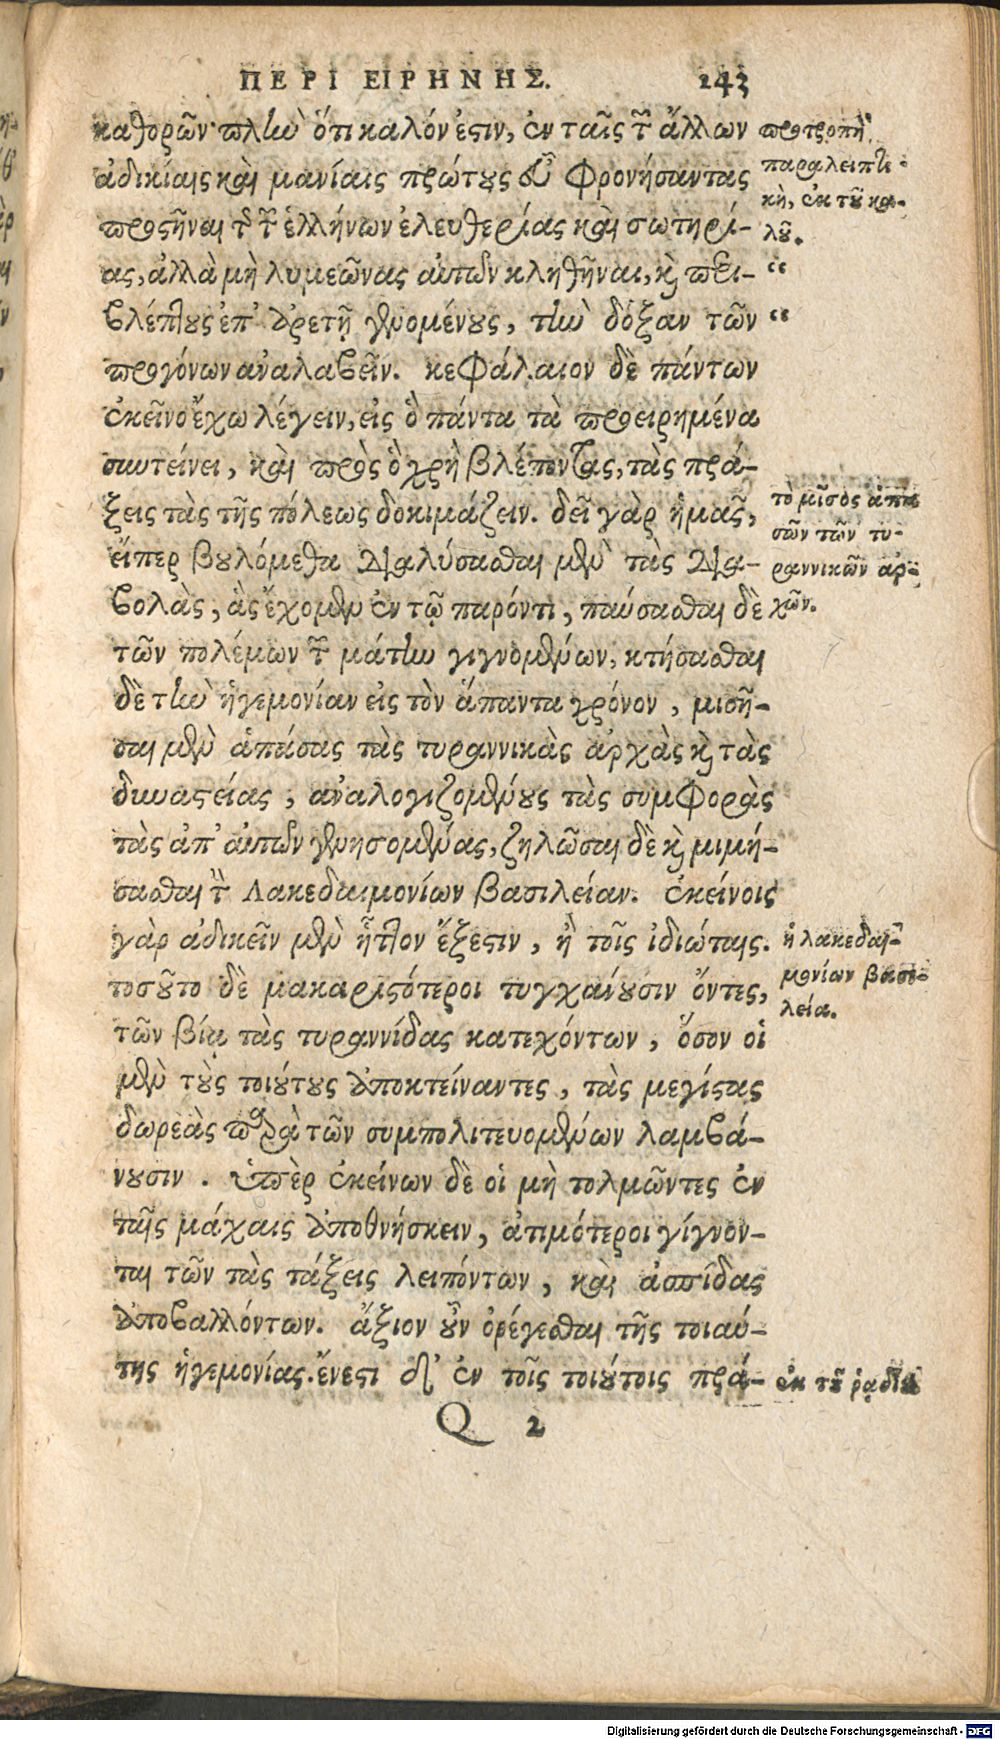 ΠΕΡΙ ΕΙΡΗΝΗΣ. 243
καθορῶν πλὴν ὅτι καλόν ἐστιν, ἐν ταῖς τῶν ἄλλων
ἀδικίαις καὶ μανίαις πρώτους εὖ φρονήσαντας
προστῆναι τῆς τῶν ἑλλήνων ἐλευθερίας καὶ σωτηρί-
ας, ἀλλὰ μὴ λυμεῶνας αὐτῶν κληθῆναι, καὶ περι-
βλέπτους ἐπ' ἀρετῇ γενομένους, τὴν δόξαν τῶν
προγόνων ἀναλαβεῖν. κεφάλαιον δὲ πάντων
ἐκεῖνο ἔχω λέγειν, εἰς ὃ πάντα τὰ προειρημένα
συντείνει, καὶ πρὸς ὃ χρὴ βλέποντας, τὰς πρά-
ξεις τὰς τῆς πόλεως δοκιμάζειν. δεῖ γὰρ ἡμᾶς,
εἴπερ βουλόμεθα διαλύσασθαι μὲν τὰς δια-
βολὰς, ἃς ἔχομεν ἐν τῷ παρόντι, παύσασθαι δὲ
τῶν πολέμων τῶν μάτην γιγνομένων, κτήσασθαι
δὲ τὴν ἡγεμονίαν εἰς τὸν ἅπαντα χρόνον, μισῆ-
σαι μὲν ἁπάσας τὰς τυραννικὰς ἀρχὰς καὶ τὰς
δυναστείας, ἀναλογιζομένους τὰς συμφορὰς
τὰς ἀπ' αὐτῶν γενησομένας, ζηλῶσαι δὲ καὶ μιμή-
σασθαι τὴν Λακεδαιμονίων βασιλείαν. ἐκείνοις
γὰρ ἀδικεῖν μὲν ἧττον ἔξεστιν, ἢ τοῖς ἰδιώταις.
τοσοῦτο δὲ μακαριστότεροι τυγχάνουσιν ὄντες,
τῶν βίᾳ τὰς τυραννίδας κατεχόντων, ὅσον οἱ
μὲν τοὺς τοιούτους ἀποκτείναντες, τὰς μεγίστας
δωρεὰς παρὰ τῶν συμπολιτευομένων λαμβά-
νουσιν. ὑπὲρ ἐκείνων δὲ οἱ μὴ τολμῶντες ἐν
ταῖς μάχαις ἀποθνήσκειν, ἀτιμότεροι γίγνον-
ται τῶν τὰς τάξεις λειπόντων, καὶ ἀσπίδας
ἀποβαλλόντων. ἄξιον οὖν ὀρέγεσθαι τῆς τοιαύ-
της ἡγεμονίας. ἔνεστι δ' ἐν τοῖς τοιούτοις πρά-
Q 2
προτροπὴ
παραλειπτι-
κὴ, ἐκ τοῦ κα-
λοῦ.
“
“
τὸ μῖσος ἁπα
σῶν τῶν τυ-
ραννικῶν ἀρ-
χῶν.
ἡ λακεδαι-
μονίων βασι-
λεία.
ἐκ τοῦ ῥᾳδίου
Digitalisierung gefördert durch die Deutsche Forschungsgemeinschaft - DFG